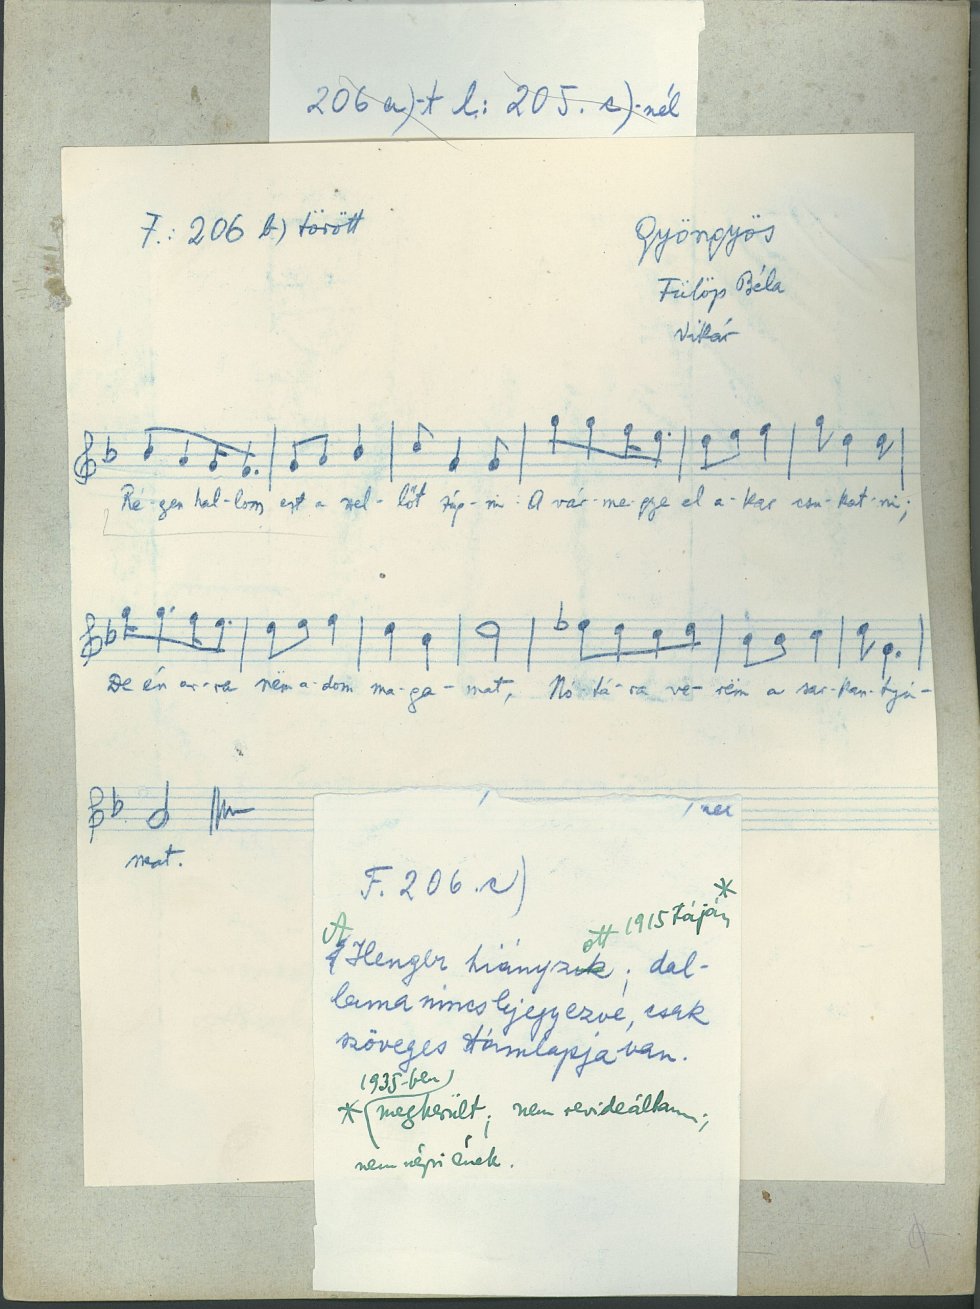 206 a)-t l: 205. c)-nél
F.: 206 b) törött
Gyöngyös
Fülöp Béla
Vikár
Ré-gen hal-lom ezt a szel-lőt zúg-ni: A vár-me-gye el a-kar csu-kat-ni;
De én ar-ra nëm a-dom ma-ga-mat, No-tá-ra ve-rëm a sar-kan-tyú-
mat.
F. 206. c)
A Henger hiányzott 1915 táján*; dal-
lama nincs lejegyezve, csak
szöveges támlapja van.
* 1935-ben megkerült; nem revideáltam;
nem népi ének.